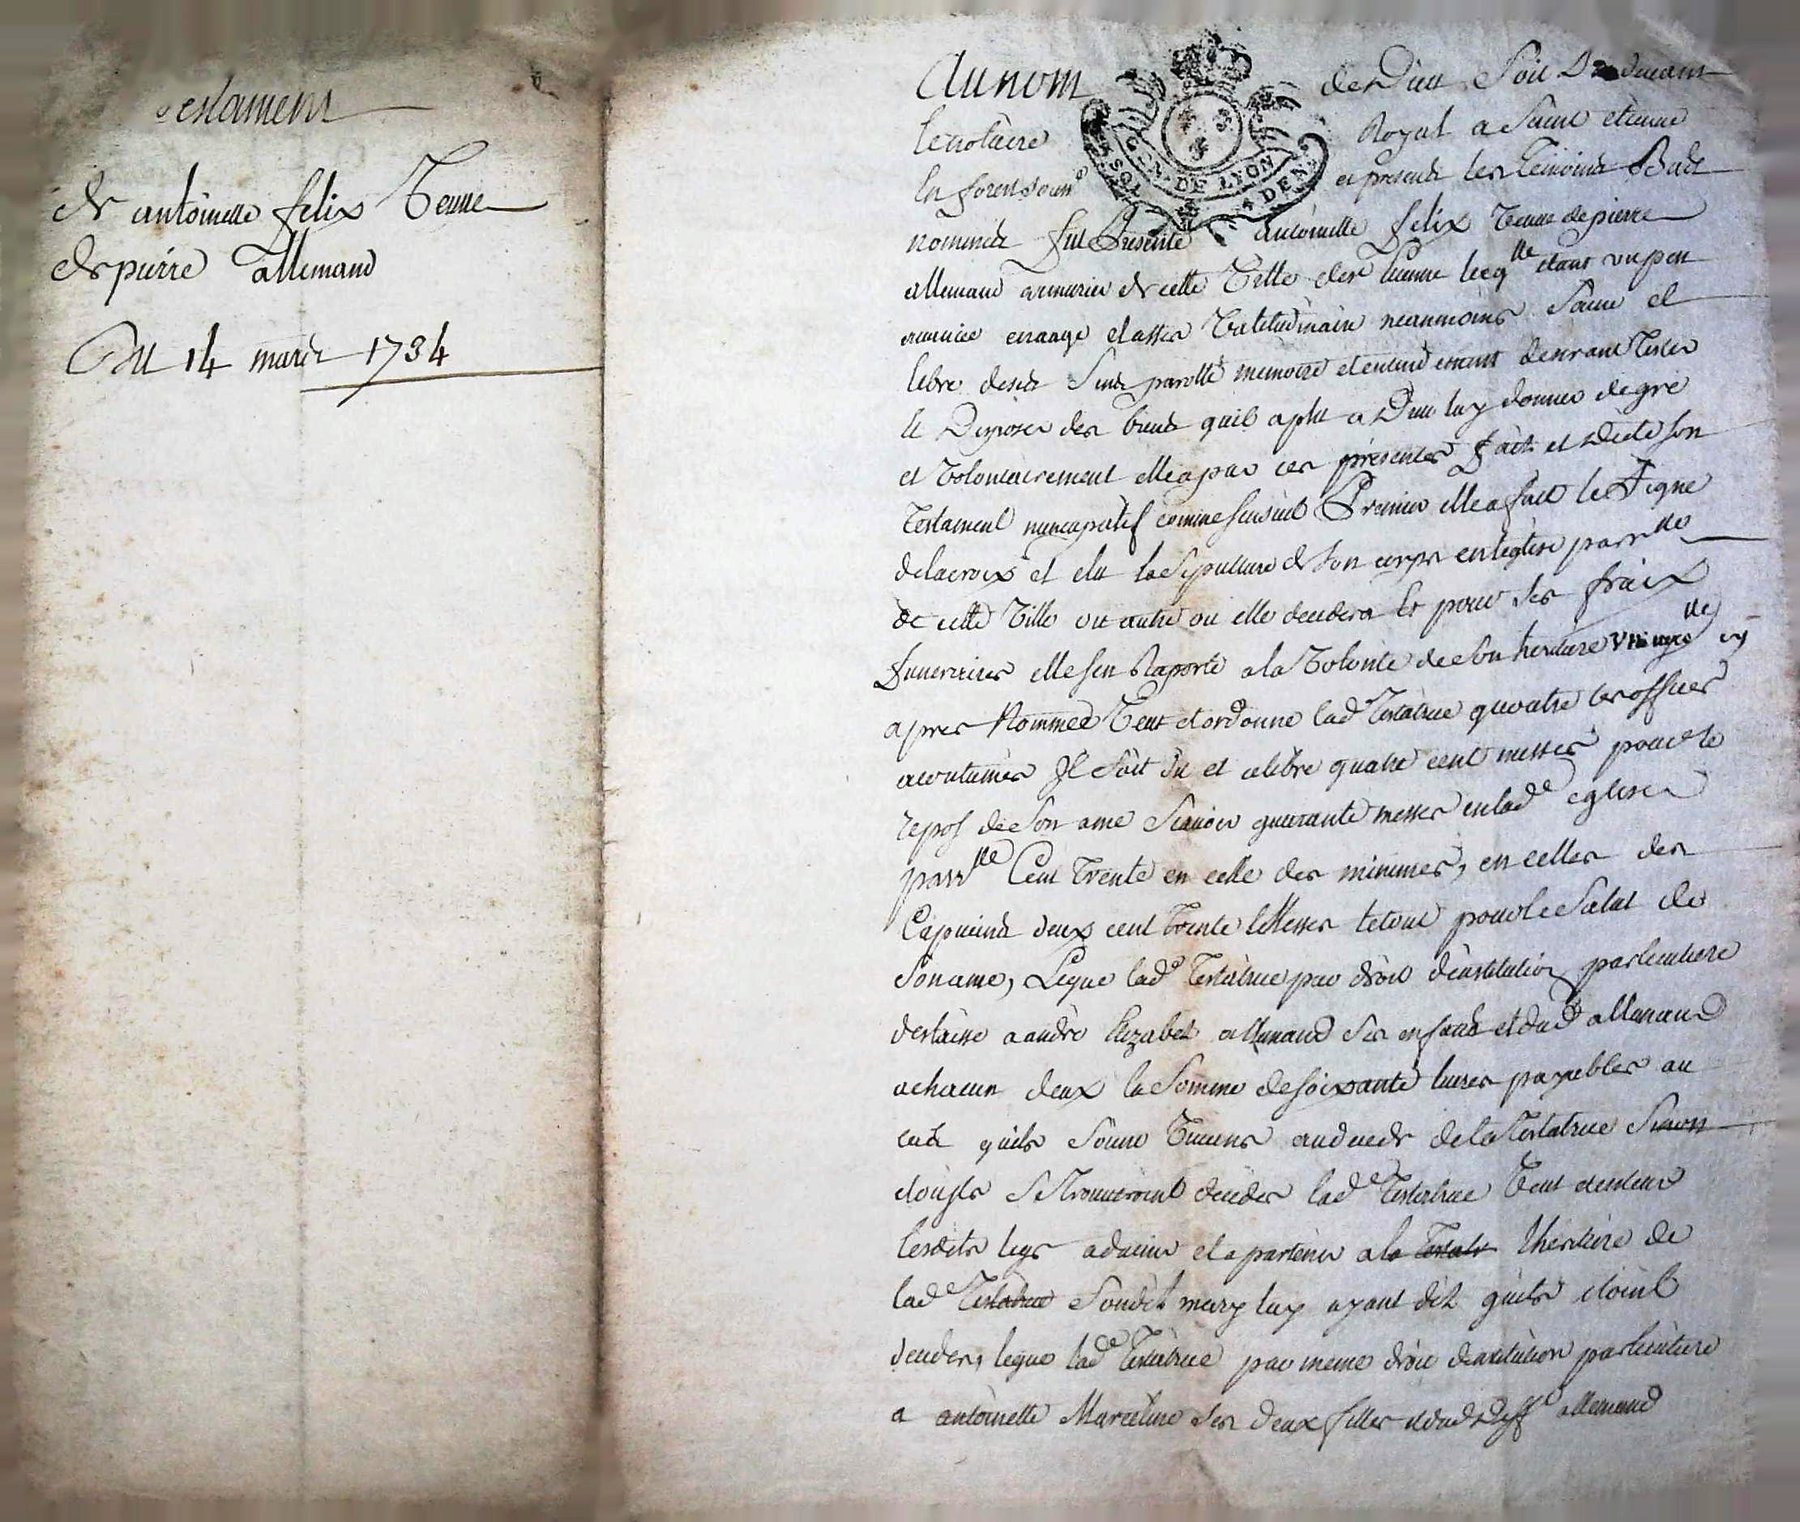 Testament
de antoinette felix Veuve
de pierre allemand
Du 14 mars 1734
Au nom de Dieu Soit Pardevant
le notaire Royal a Saint etienne
en forest soun.é et presents les Temoins Bas
nommés fut Presente antoinette felix Veuve de pierre
allemand armurier de cette Ville de St etienne lesq.lle etant un peu
avancée en aage et asses Valetudinaire neanmoins Saine et
libre de ses Sens parolle memoire et entendement desirant Tester
et Disposer des biens quil a plu a Dieu luy donner de gré
et Volontairement elle a par ces presentes fait et Dicté son
Testament nuncupatif comme sensuit Premier elle a fait le Signe
de la croix et elu la Sepulture de son corps en leglise parr.lle
de cette Ville ou autre ou elle decedera Et pour Ses fraix
funeraires elle sen Raporte a la Volonté de son heritiere cy
apres Nommée Veut et ordonne lad.e Testatrice quoutre les offices
acoutumés Il Soit dit et celebré quatre cent messes pour le
repos de Son ame Scavoir quarante messes en lad.e eglise
parr.lle Cent Trente en celle des minimes, en celles des
Capucins deux cent Trente Messes le tout pour le Salut de
Son ame, Legue lad.e Testatrice par droit dinstitution particuliere
a andré Elizabet allemand Ses enfans et dud allemand
a chacun deux la Somme de soixante livres payables au
cas quils Soint Vivens au deceds de la Testatrice Sinon
et ou ils Se Trouveroint decedes lad.e Testatrice Veut et entend
lesdits legs advenir et apartenir a la Testatr lheritiere de
lad.e Testatrice Soudit mary luy ayant dit quils etoint
decedes, legue lad.e Testatrice par meme droit dinstitution particuliere
a antoinette Marceline Ses deux filles et dud deff.t allemand
SOLS GEN. DE LYON 4 DEN.